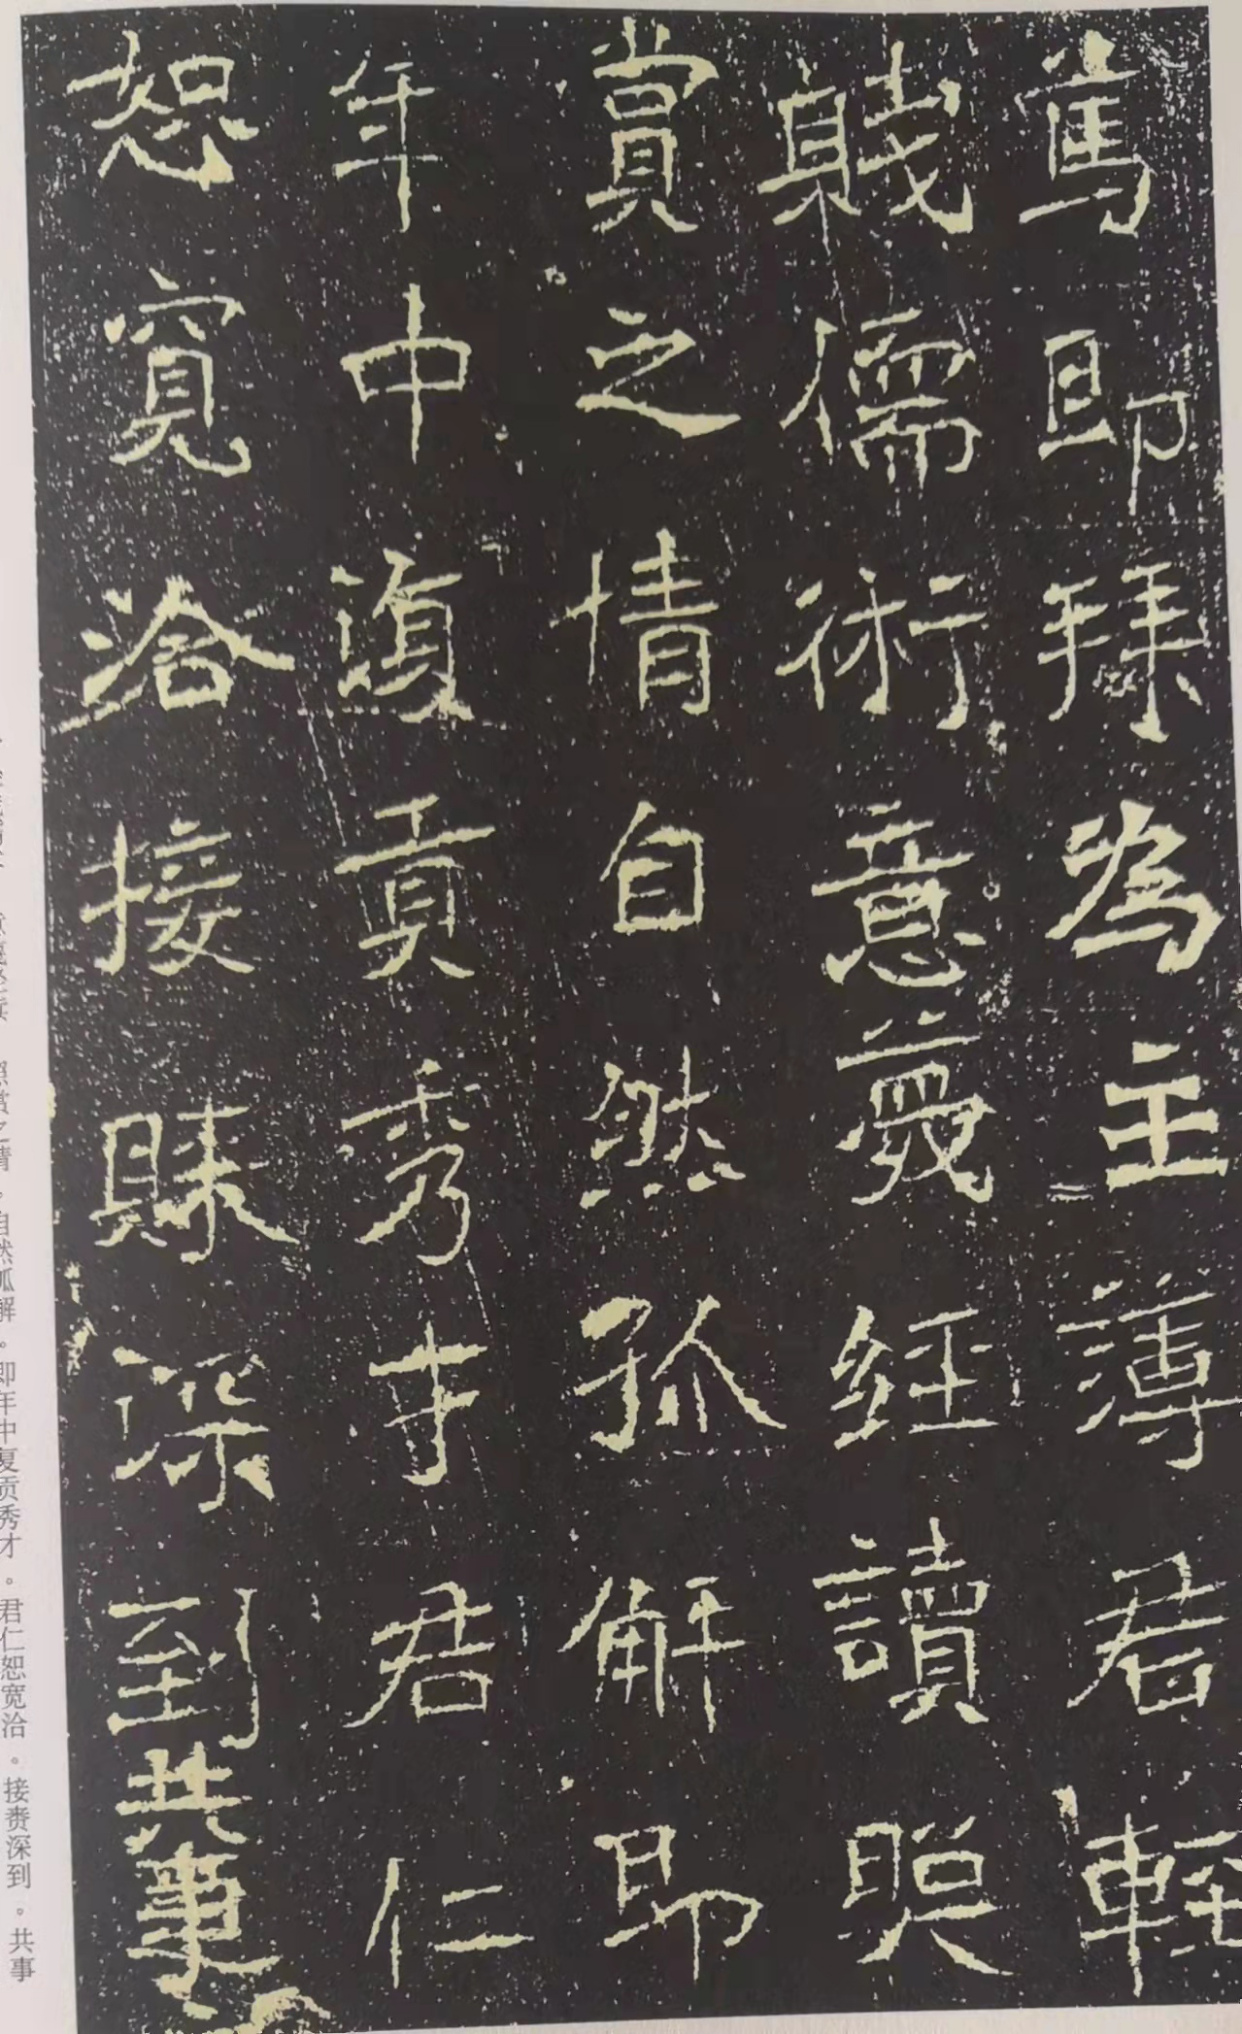 雋即拜為主薄君輕
賤儒術意蔑經讀照
賞之情自然孤解即
年中復貢秀才君仁
恕寬洽接賚深到共事
照赏之情。自然孤解。即年中复贡秀才。君仁恕宽洽。接赉深到。共事